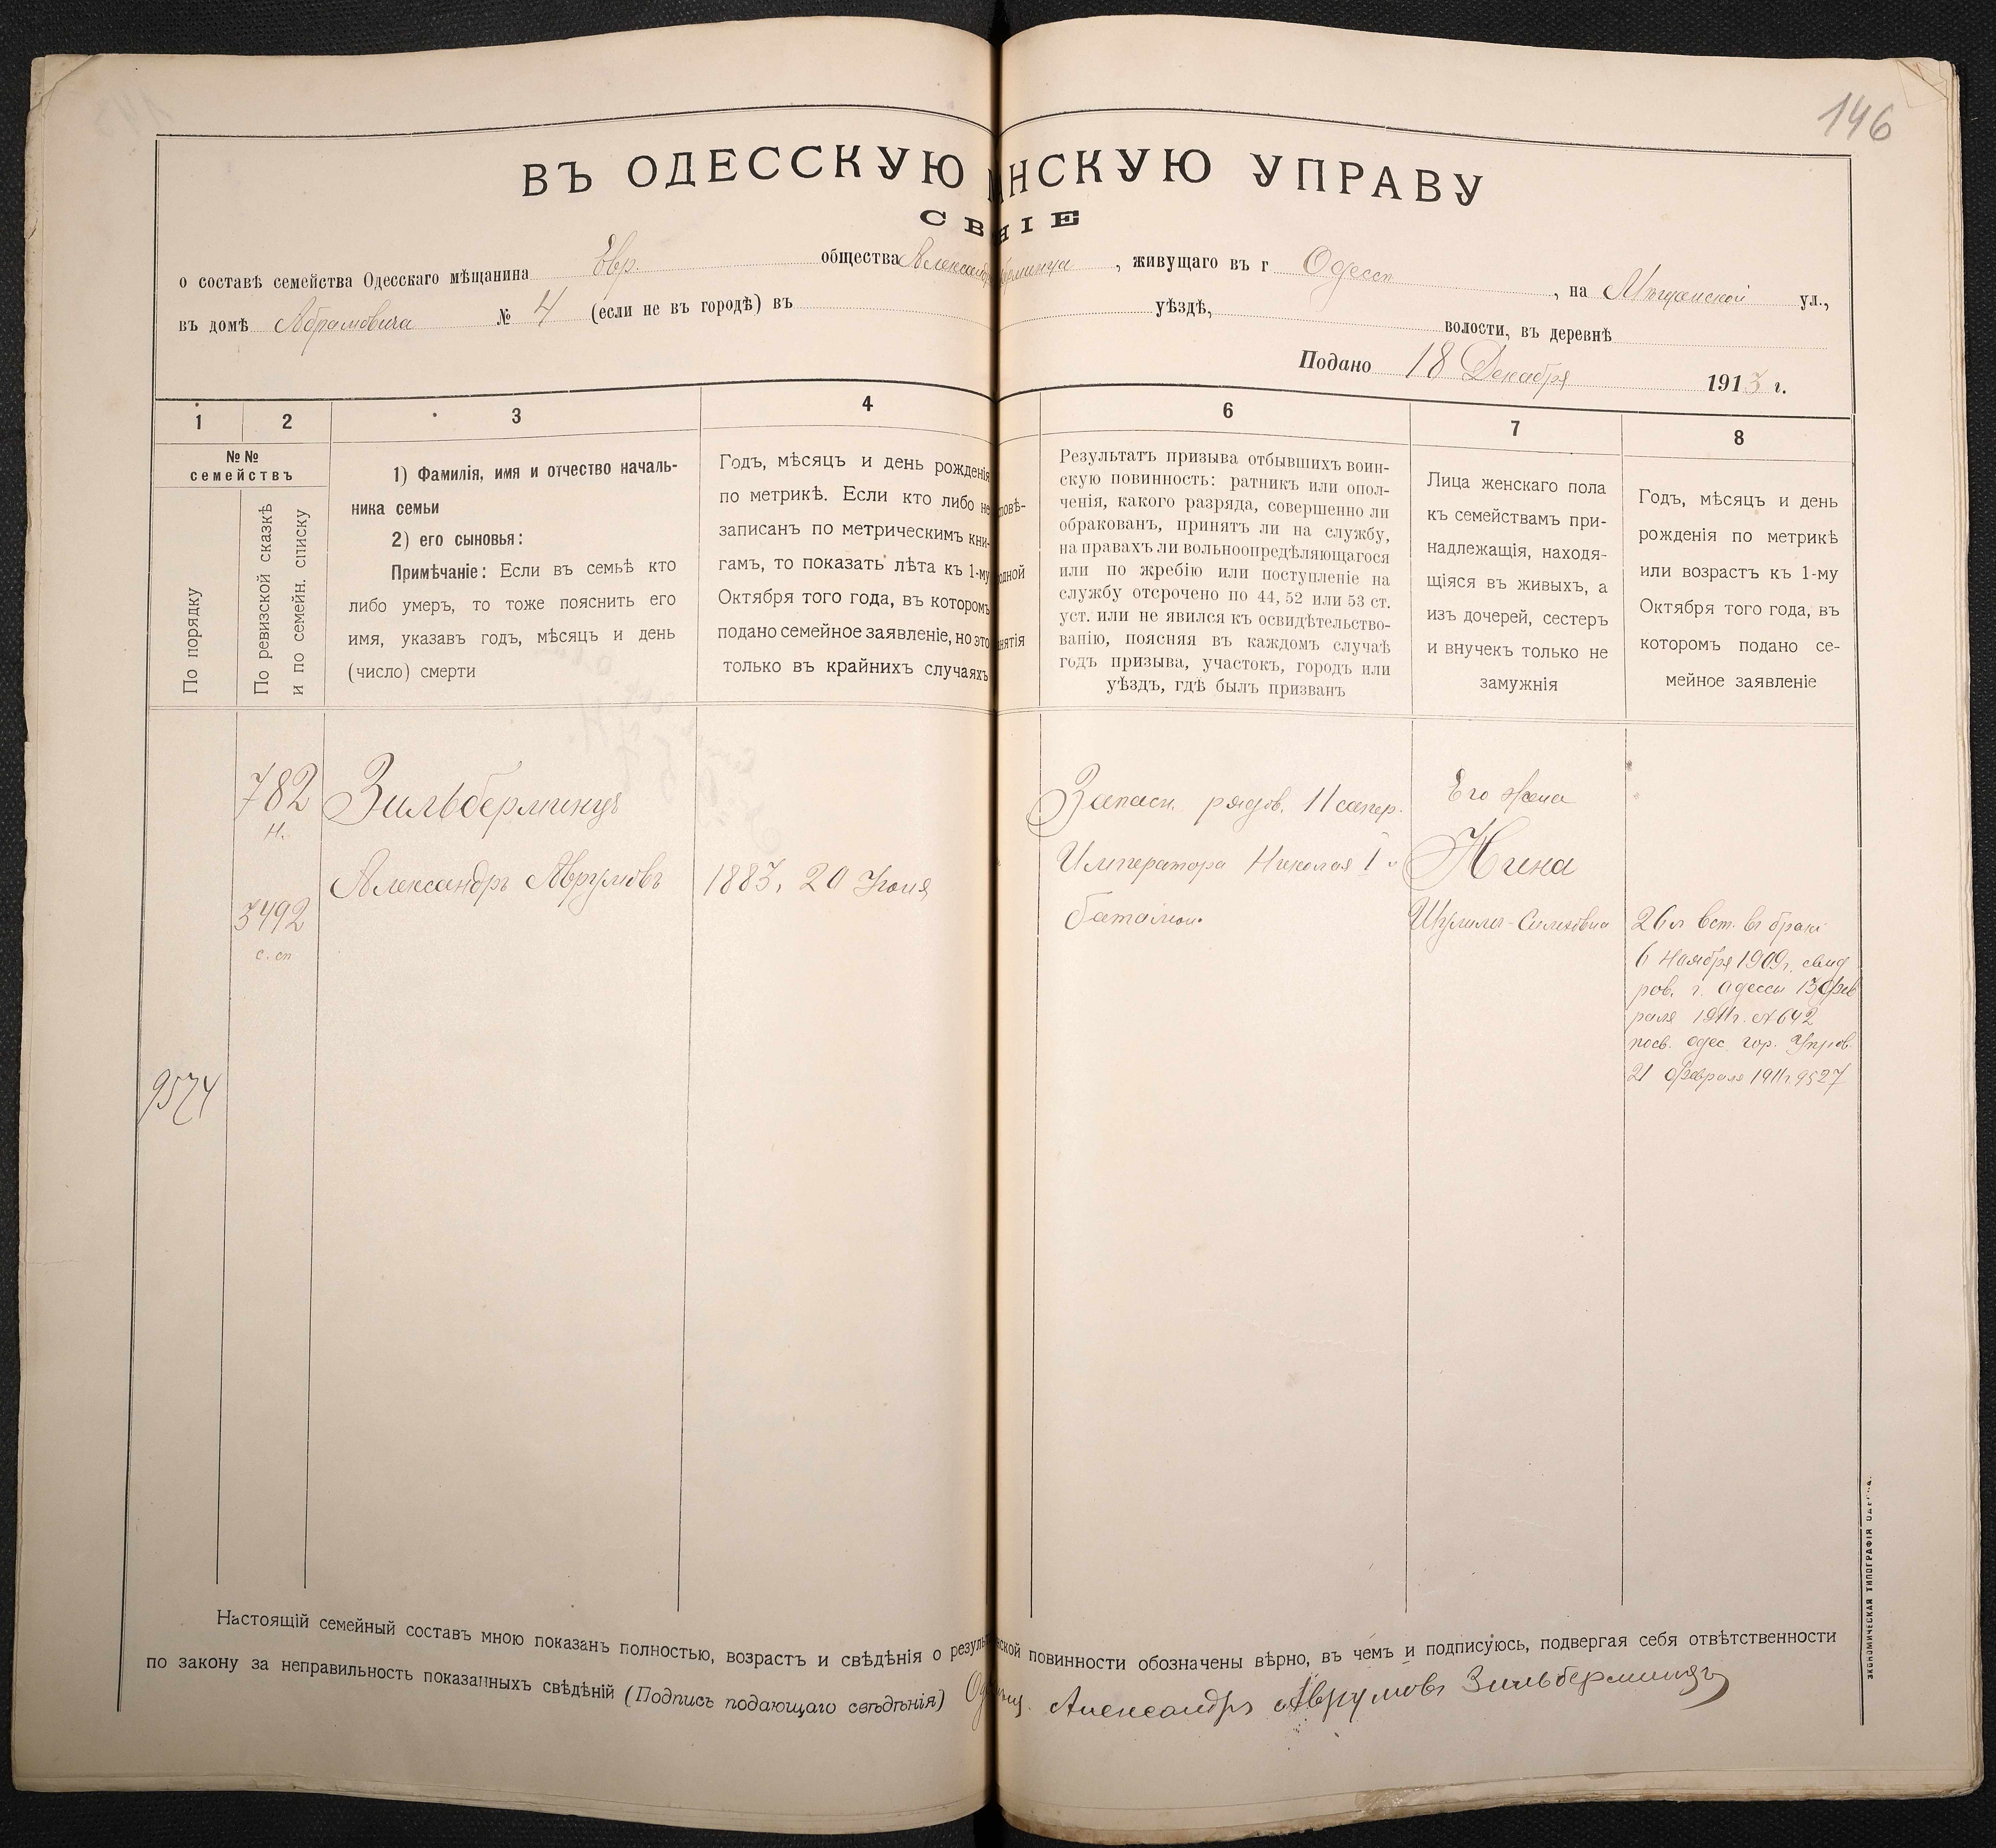 146
ВЪ ОДЕССКУЮ НСКУЮ УПРАВУ
СВ НІЕ
о составѣ семейства Одесскаго мѣщанина Евр. общества Александ рминца, живущаго въ г Одессѣ, на Мѣщанской ул.,
въ домѣ Абрамовича № 4 (если не въ городѣ) въ уѣздѣ, волости, въ деревнѣ
Подано 18 Декабря 1913 г.
1 2 3 4 6 7 8
№№
семействъ
По порядку
По ревизской сказкѣ
и по семейн. списку
1) Фамилія, имя и отчество началь-
ника семьи
2) его сыновья:
Примѣчаніе: Если въ семьѣ кто
либо умеръ, то тоже пояснить его
имя, указавъ годъ, мѣсяцъ и день
(число) смерти
Годъ, мѣсяцъ и день рожденія
по метрикѣ. Если кто либо не
записанъ по метрическимъ кни-
гамъ, то показать лѣта къ 1-му
Октября того года, въ которомъ
подано семейное заявленіе, но это
только въ крайнихъ случаяхъ
повѣ-
одной
нятія
Результатъ призыва отбывшихъ воин-
скую повинность: ратникъ или опол-
ченія, какого разряда, совершенно ли
обракованъ, принятъ ли на службу,
на правахъ ли вольноопредѣляющагося
или по жребію или поступленіе на
службу отсрочено по 44, 52 или 53 ст.
уст. или не явился къ освидѣтельство-
ванію, поясняя въ каждомъ случаѣ
годъ призыва, участокъ, городъ или
уѣздъ, гдѣ былъ призванъ
Лица женскаго пола
къ семействамъ при-
надлежащія, находя-
щіяся въ живыхъ, а
изъ дочерей, сестеръ
и внучекъ только не
замужнія
Годъ, мѣсяцъ и день
рожденія по метрикѣ
или возрастъ къ 1-му
Октября того года, въ
которомъ подано се-
мейное заявленіе
9574
782
н.
3492
с. сп
Зильберминцъ
Александръ Аврумовъ
1883, 20 Іюня
Запасн. рядов. 11 сапер.
Императора Николая I
баталіон.
Его жена
Нина
26 л вст. въ бракъ
6 Ноября 1909 г. свид
рав. г. Одессы 13 Фев
раля 1911 г. № 642
Одес. гор. Управ.
21 Февраля 1911 г 9527
Настоящій семейный составъ мною показанъ полностью, возрастъ и свѣдѣнія о резуль нской повинности обозначены вѣрно, въ чемъ и подписуюсь, подвергая себя отвѣтственности
по закону за неправильность показанныхъ свѣдѣній (Подпись подающаго свѣдѣнія) Александръ Аврумовъ Зильберминцъ
ЭКОНОМИЧЕСКАЯ ТИПОГРАФІЯ